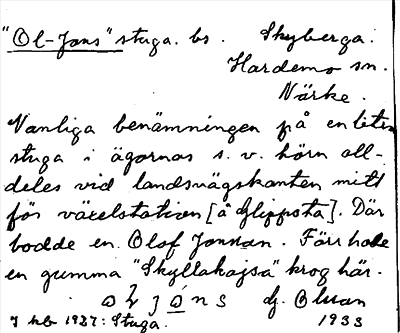 "Ol-Jans" stuga. bs. Skyberga.
Hardemo sn.
Närke.
Vanliga benämningen på en liten
stuga i ägornas s. v. hörn all-
deles vid landsvägskanten mitt
för växelstation [å Glippsta]. Där
bodde en Olof Jonsson. Förr hade
en gumma "Skyllakajsa" krog här.
G. Olsson
I kb 1927: Stuga. 1933